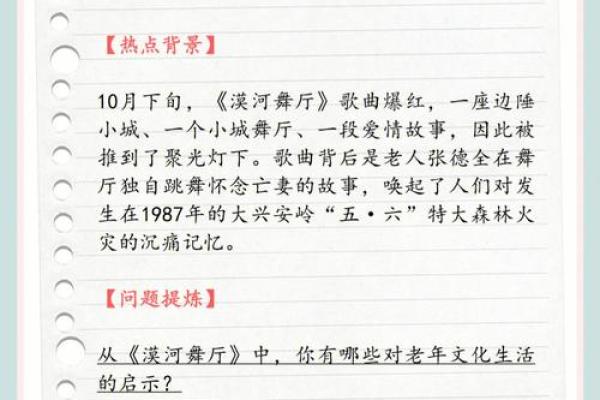 【热点背景】
10月下旬，《漠河舞厅》歌曲爆红，一座边陲
小城、一个小城舞厅、一段爱情故事，因此被
推到了聚光灯下。歌曲背后是老人张德全在舞
厅独自跳舞怀念亡妻的故事，唤起了人们对发
生在1987年的大兴安岭“五·六”特大森林火
灾的沉痛记忆。
【问题提炼】
从《漠河舞厅》中，你有哪些对老年文化生活
的启示？